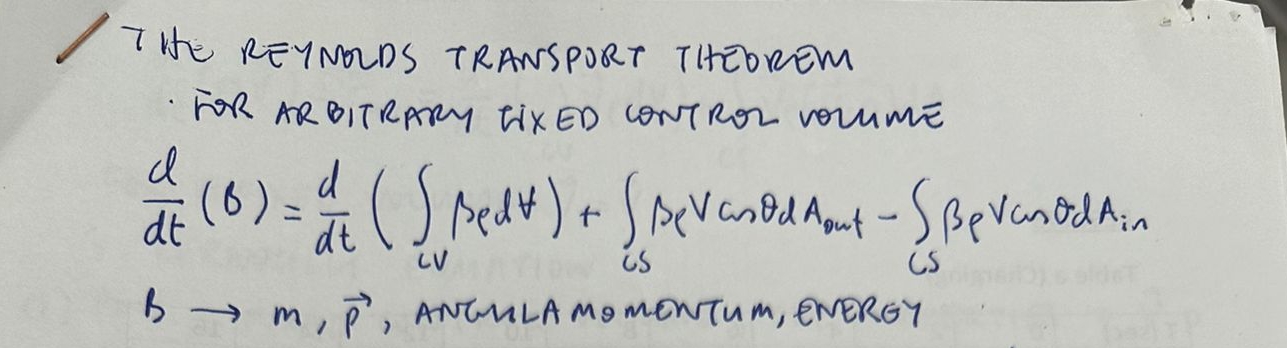 THE REYNOLDS TRANSPORT THEOREM
· FOR ARBITRARY FIXED CONTROL VOLUME
d/dt (B) = d/dt ( ∫_CV βρdV̶ ) + ∫_CS βρV cosθ dA_out − ∫_CS βρV cosθ dA_in
B → m, p⃗, ANGULA MOMENTUM, ENERGY